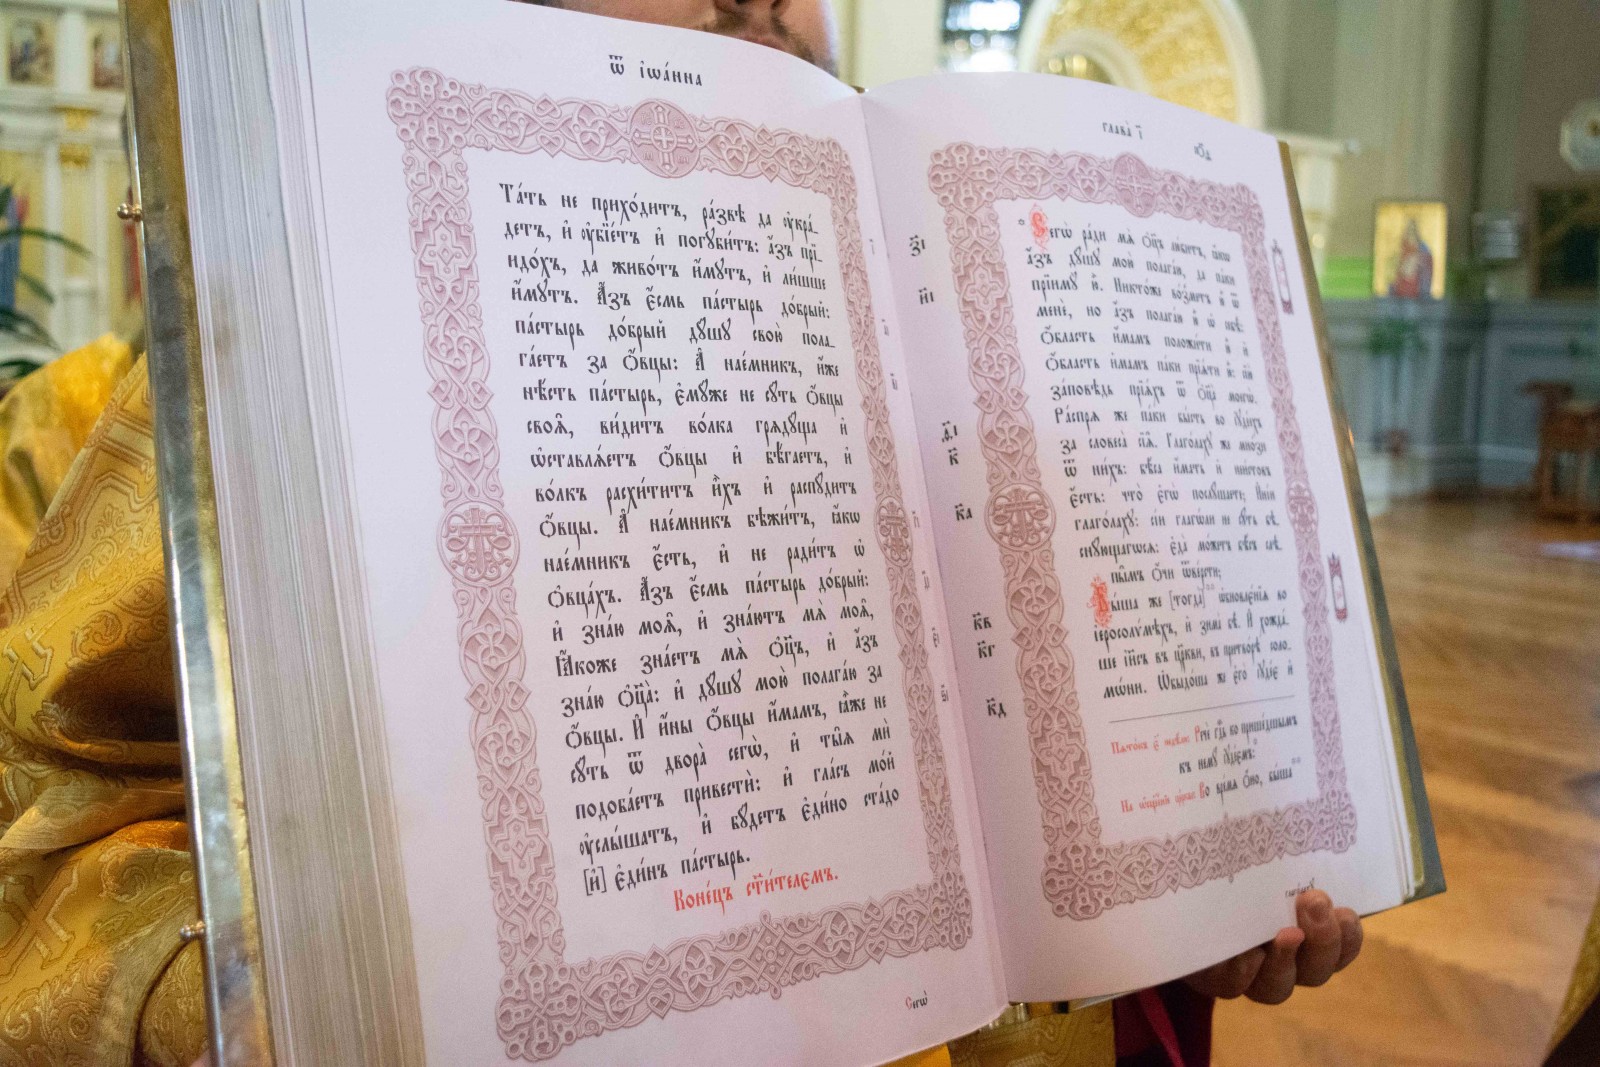 ѿ іѡа́нна
Та́ть не прихо́дитъ, ра́звѣ да ᲂу҆кра́-
детъ, и҆ ᲂу҆бїе́тъ и҆ погꙋби́тъ: а҆́зъ прї-
идо́хъ, да живо́тъ и҆́мꙋтъ, и҆ ли́шше
и҆́мꙋтъ. А҆́зъ є҆́смь па́стырь до́брый:
па́стырь до́брый дꙋ́шꙋ свою̀ пола-
га́етъ за ѻ҆́вцы: А҆ нае́мникъ, и҆́же
нѣ́сть па́стырь, є҆мꙋ́же не сꙋ́ть ѻ҆́вцы
своѧ̑, ви́дитъ во́лка грѧдꙋ́ща и҆
ѡ҆ставлѧ́етъ ѻ҆́вцы и҆ бѣ́гаетъ, и҆
во́лкъ расхи́титъ и҆̀хъ и҆ распꙋ́дитъ
ѻ҆́вцы. А҆ нае́мникъ бѣжи́тъ, ꙗ҆́кѡ
нае́мникъ є҆́сть, и҆ не ради́тъ ѡ҆
ѻ҆вца́хъ. А҆́зъ є҆́смь па́стырь до́брый:
и҆ зна́ю моѧ̑, и҆ зна́ютъ мѧ̀ моѧ̑,
Ꙗ҆́коже зна́етъ мѧ̀ ѻ҆ц҃ъ, и҆ а҆́зъ
зна́ю ѻ҆ц҃а̀: и҆ дꙋ́шꙋ мою̀ полага́ю за
ѻ҆́вцы. И҆ и҆́ны ѻ҆́вцы и҆́мамъ, ꙗ҆̀же не
сꙋ́ть ѿ двора̀ сегѡ̀, и҆ ты̑ѧ мѝ
подоба́етъ привестѝ: и҆ гла́съ мо́й
ᲂу҆слы́шатъ, и҆ бꙋ́детъ є҆ди́но ста́до
[и҆] є҆ди́нъ па́стырь.
Коне́цъ ст҃и́телемъ.
Сегѡ̀
глава̀ і҃
з҃і
и҃і
ѳ҃і
к҃
к҃а
к҃в
к҃г
к҃д
Сегѡ̀ ра́ди мѧ̀ ѻ҆ц҃ъ лю́битъ, ꙗ҆́кѡ
а҆́зъ дꙋ́шꙋ мою̀ полага́ю, да па́ки
прїимꙋ̀ ю҆̀. Никто́же во́зметъ ю҆̀ ѿ
менѐ, но а҆́зъ полага́ю ю҆̀ ѡ҆ себѣ̀:
ѻ҆́бласть и҆́мамъ положи́ти ю҆̀ и҆
ѻ҆́бласть и҆́мамъ па́ки прїѧ́ти ю҆̀: сїю̀
за́повѣдь прїѧ́хъ ѿ ѻ҆ц҃а̀ моегѡ̀.
Ра́спрѧ же па́ки бы́сть во і҆ꙋде́ехъ
за словеса̀ сїѧ̑. Глаго́лахꙋ же мно́зи
ѿ ни́хъ: бѣ́са и҆́мать и҆ неи́стовъ
є҆́сть: что̀ є҆гѡ̀ послꙋ́шаете; И҆ні́и
глаго́лахꙋ: сі́и глаго́ли не сꙋ́ть бѣ-
снꙋ́ющагѡсѧ: є҆да̀ мо́жетъ бѣ́съ слѣ-
пы̑мъ ѻ҆́чи ѿве́рсти;
Бы́ша же [тогда̀] ѡ҆бновле́нїѧ во
і҆еросоли́мѣхъ, и҆ зима̀ бѣ̀. И҆ хожда́-
ше і҆и҃съ въ цр҃кви, въ притво́рѣ соло-
мѡ́ни. Ѡ҆быдо́ша же є҆го̀ і҆ꙋде́є и҆
Речѐ гд҇ь ко прише́дшымъ
къ немꙋ̀ і҆ꙋде́ємъ:
Во вре́мѧ ѻ҆́но, бы́ша